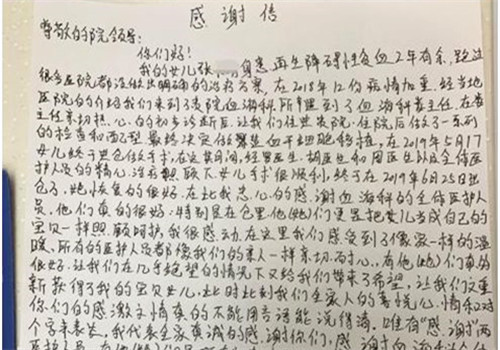 感谢信
尊敬的院领导:
你们好!
我的女儿张 身患再生障碍性贫血2年有余,跑过
很多医院都没做出明确的治疗方案,在2018年12份病情加重,经当地
医院的介绍我们来到贵院血液科,所幸遇到了血液科姜主任,在姜
主任亲切热心的初步诊断后,让我们住进贵院,住院后做了一系列
的检查和配型最终决定做造血干细胞移植,在2019年5月17
女儿终于进仓做手术,在这期间,经 医生,胡医生和周医生以及全体医
护人员的精心治疗照顾下女儿手术很顺利,终于在2019年6月25日进
仓了,她恢复的很好,在此我忠心的感谢血液科的全体医护人
员,他们真的很好,特别是在仓里他(她)们更是把女儿当成自己的
宝贝一样照顾呵护,我很感动,在这里我们感受到了像家一样的温
暖,所有的医护人员都像我们的亲人一样亲切,耐心,有他(她)们真的
很好,让我们在几乎绝望的情况下又给我们带来了希望,让我们又重
新获得了我的宝贝女儿,此时此刻我们全家人的喜悦儿,情和对
你们的感激之情真的不能用言语能说得清,唯有“感谢”两
个字来表达,我代表全家真诚的感谢你们,感谢血液科